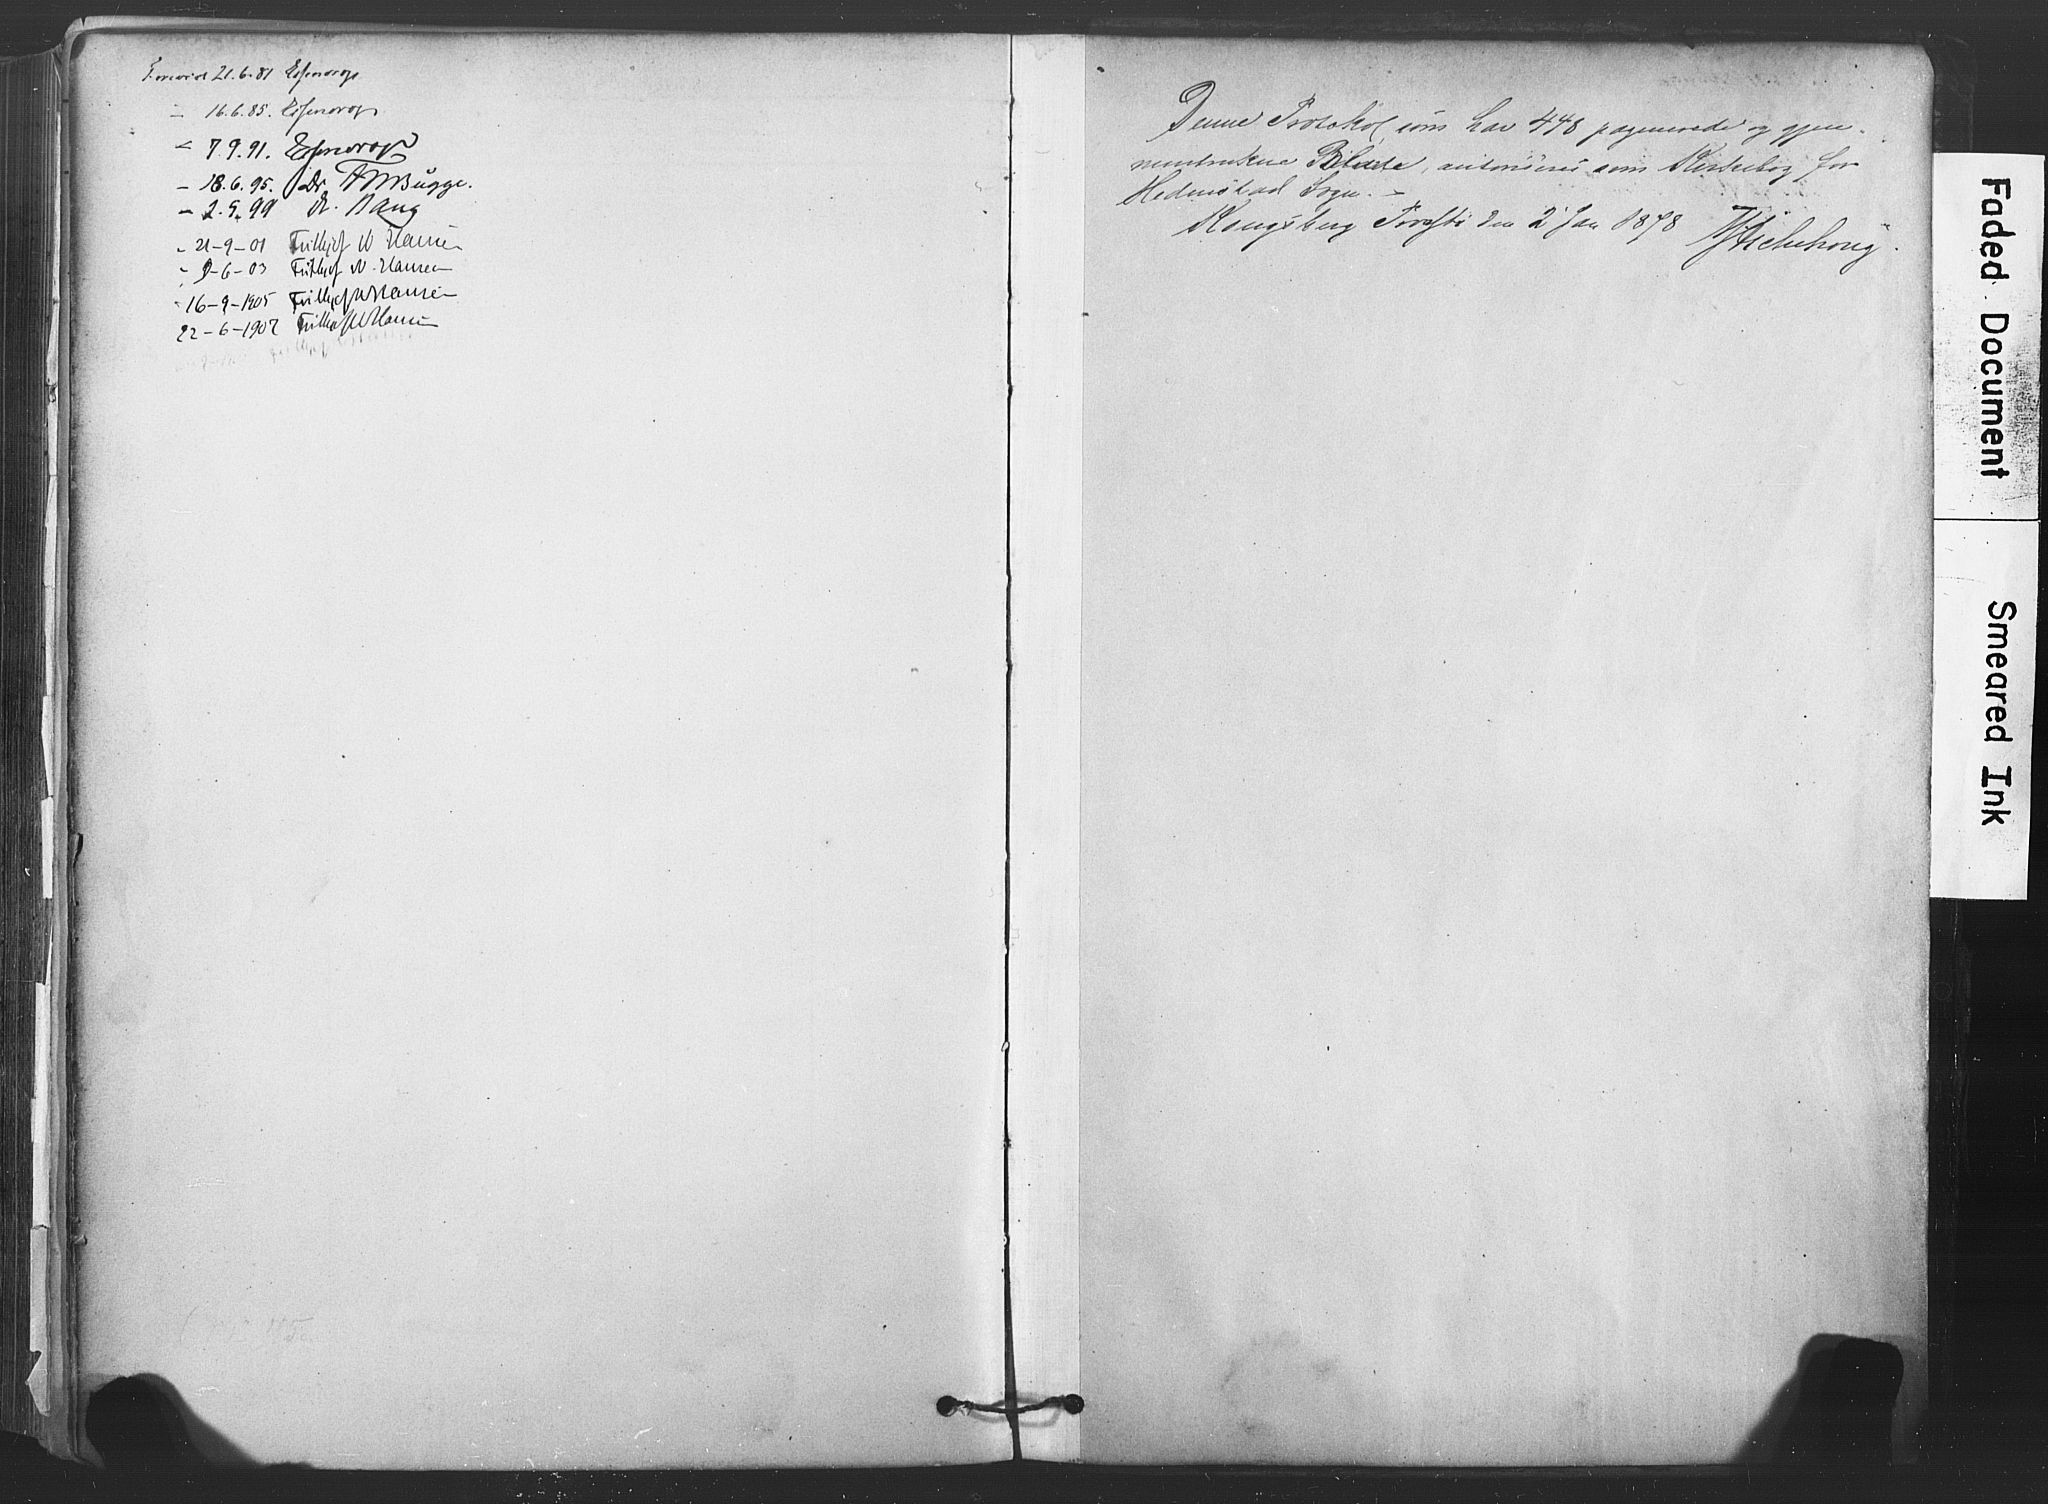 21.6.81 Essendrop
– 16.6.85. Essendrop
– 7.9.91. Essendrop
– 18.6.95. Dr. FWBugge.
– 2.9.99 Dr. Bang
– 21-9-01 Frithjof W Hansen
– 9-6-03 Frithjof W. Hansen
16-9-1905 Frithjof W Hansen
22-6-1907 Frithjof W Hansen
Denne Protokol som har 448 paginerede og gjen-
nemtrukne Blade, autoriseres som Kirkebog for
Hedenstad Sogn. –
Kongsberg Provsti den 2 Jan 1878 Aschehoug.
Faded Document
Smeared Ink